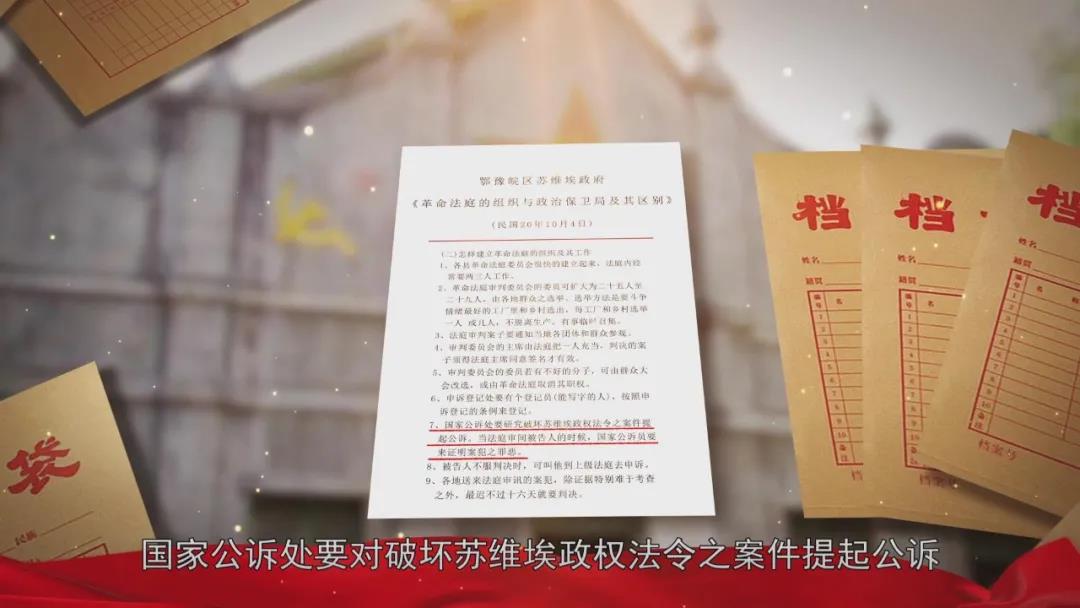 鄂豫皖区苏维埃政府
《革命法庭的组织与政治保卫局及其区别》
(民国20年10月4日)
(二)怎样建立革命法庭的组织及其工作
1、各县革命法庭委员会很快的建立起来,法庭内经
常要两三人工作。
2、革命法庭审判委员会的委员可扩大为二十五人至
二十九人,由各地群众之选举,选举方法是要斗争
情绪最好的工厂里和乡村选出,每工厂和乡村选举
一人 或几人,不脱离生产,有事临时召集。
3、法庭审判案子要通知当地各团体和群众参观。
4、审判委员会的主席由法庭把一人充当,判决的案
子须得法庭主席同意签名才有效。
5、审判委员会的委员若有不好的分子,可由群众大
会改选,或由革命法庭取消其职权。
6、申诉登记处要有个登记员(能写字的人),按照申
诉登记的条例来登记。
7、国家公诉处要研究破坏苏维埃政权法令之案件提
起公诉。当法庭审问被告人的时候,国家公诉员要
来证明案犯之罪恶。
8、被告人不服判决时,可叫他到上级法庭去申诉。
9、各地送来法庭审讯的案犯,除证据特别难于考查
之外,最迟不过十六天就要判决。
档
姓名
籍贯
编号
名
1
2
3
4
5
6
7
8
9
10
备注
档案
档
姓名
籍贯
编号
名
1
2
3
4
5
6
7
8
9
10
备注
档案
档
姓名
籍贯
编号
名 称
1
2
3
4
5
6
7
8
9
10
备注
档案号
袋
民族
国家公诉处要对破坏苏维埃政权法令之案件提起公诉